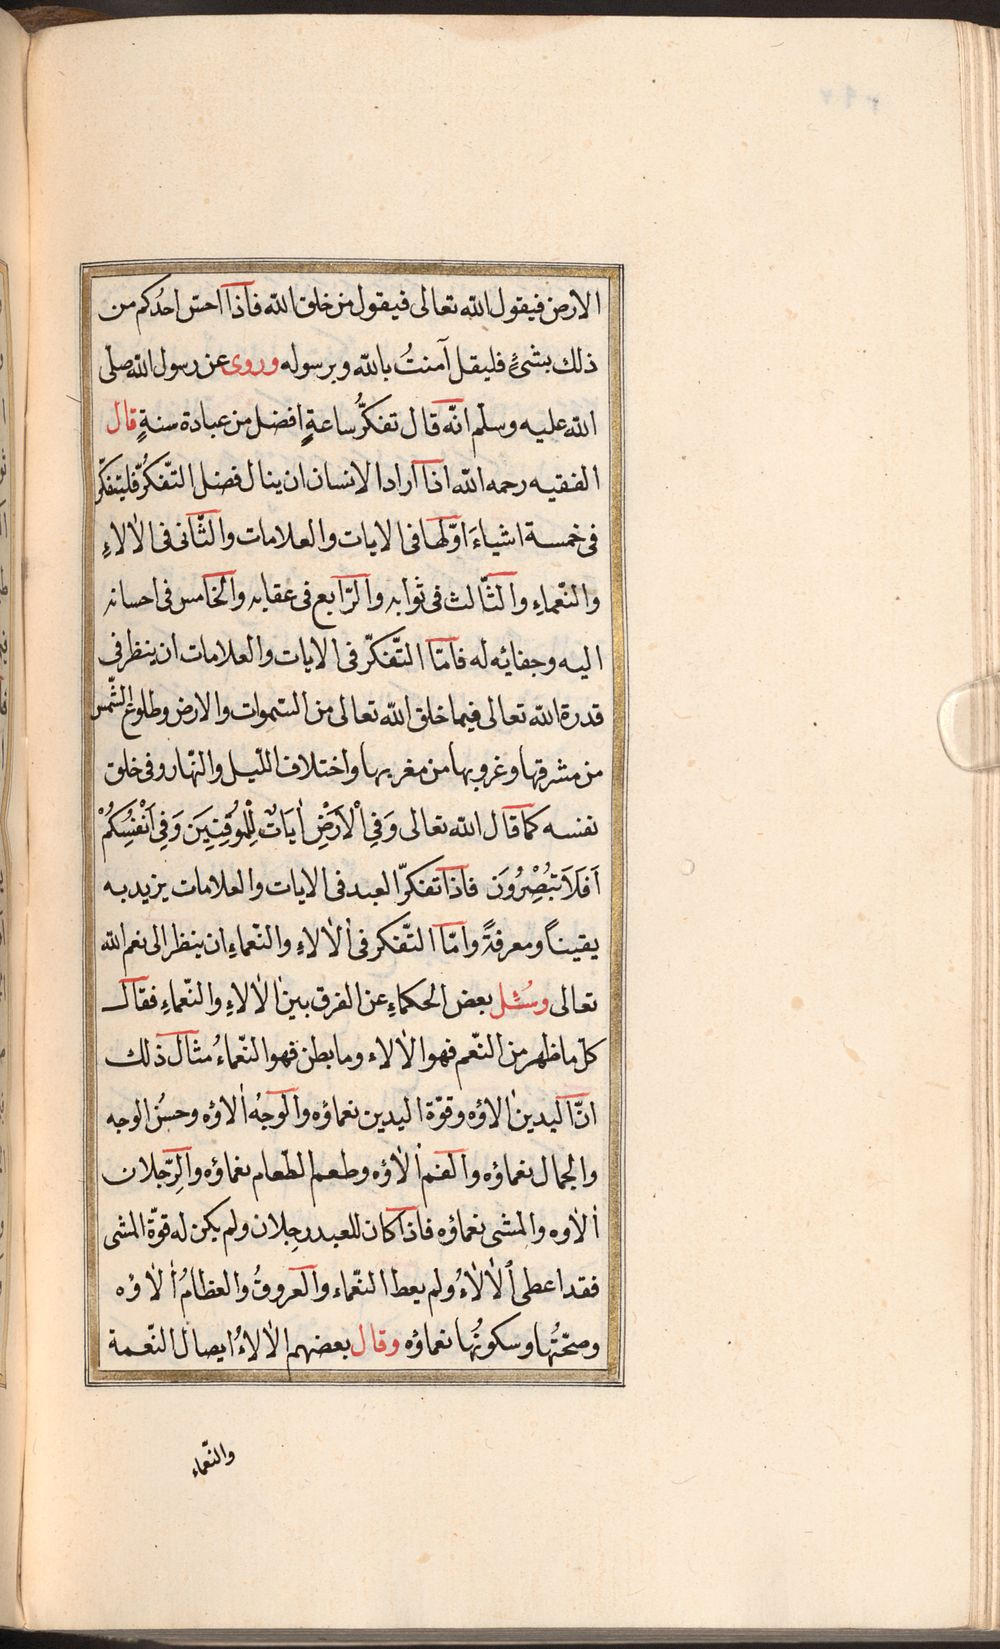 الارض فيقول الله تعالى فيقول من خلق الله فاذا احسّ احدُكم من
ذلك بشئٍ فليقل آمنتُ بالله وبرسوله وروى عن رسول الله صلّى
الله عليه وسلّم انّه قال تفكّرُ ساعةٍ افضل من عبادة سنةٍ قال
الفقيه رحمه الله اذا اراد الانسان ان ينال فضل التّفكّر فليتفكّر
فى خمسة اشياءَ اوّلها فى الايات والعلامات والثّانى فى الٰالاءِ
والنّعماءِ والثّالث فى ثوابه والرّابع فى عقابه والخامس فى احسانه
اليه وجفائه له فامّا التّفكّر فى الايات والعلامات ان ينظر فى
قدرة الله تعالى فيما خلق الله تعالى من السّموات والارض وطلوع الشّمس
من مشرقها وغروبها من مغربها واختلاف اللّيل والنّهار وفى خلق
نفسه كما قال الله تعالى وَفِى الْاَرْضِ اٰيَاتٌ لِلْمُوقِنِينَ وَفِى اَنْفُسِكُمْ
اَفَلَا تُبْصِرُونَ فاذا تفكرّ العبد فى الايات والعلامات يزيد به
يقيناً ومعرفةً وامّا التّفكر فى الٰالاءِ والنّعماءِ ان ينظر الى نعم الله
تعالى وسُئل بعض الحكماءِ عن الفرق بين الٰالاءِ والنّعماءِ فقال
كلّ ما ظهر من النّعم فهو الٰالاء وما بطن فهو النّعماءُ مثال ذلك
انّ اليدين الاؤه وقوّة اليدين نعماؤه والوجُه اٰلاؤه وحسنُ الوجه
والجمال نعماؤه والفم اٰلاؤه وطعم الطّعام نعماؤه والرِّجلان
اٰلاوه والمشى نعماؤه فاذا كان للعبد رجلان ولم يكن له قوّة المشى
فقد اعطى الٰالاءُ ولم يعط النّعماء والعروقُ والعظامُ اٰلاؤه
وصحّتُها وسكونُها نعماؤه وقال بعضهم الٰالاءُ ايصال النّعمة
والنّعماء